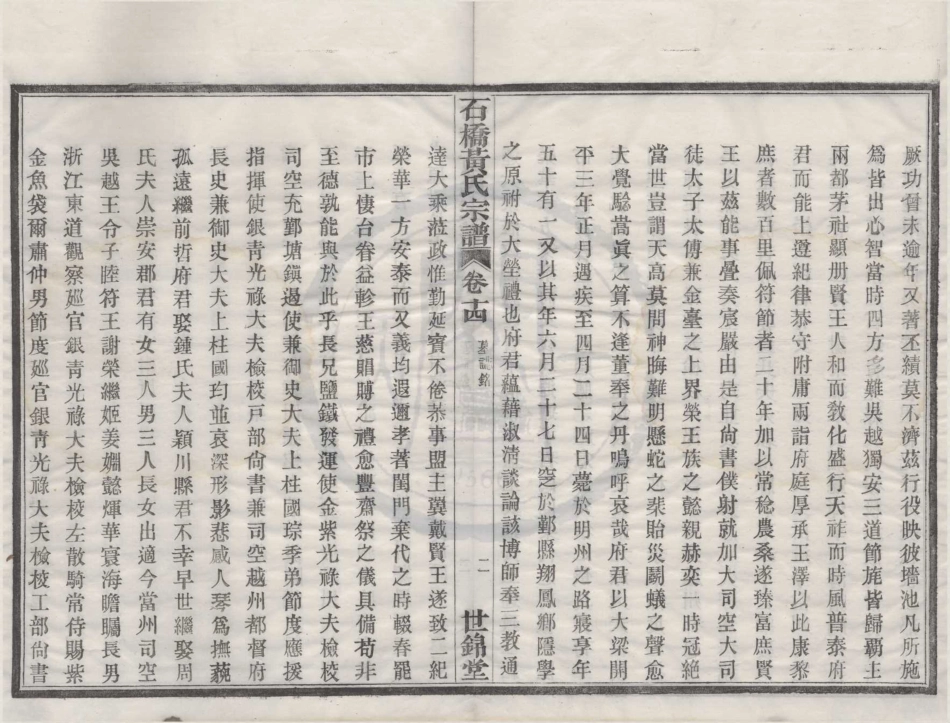 厥功曾未逾年又著丕績莫不濟茲行役映彼墻池凡所施
為皆出心智當時四方多難吳越獨安三道節旄皆歸霸主
兩都茅社顯册賢王人和而敎化盛行天祚而時風普泰府
君而能上遵紀律恭守附庸兩詣府庭厚承王澤以此康黎
庶者數百里佩符節者二十年加以常稔農桑遂臻富庶賢
王以茲能事疊奏宸嚴由是自尙書僕射就加大司空大司
徒太子太傅兼金臺之上界榮王族之懿親赫奕一時冠絶
當世豈謂天高莫問神晦難明懸蛇之祟貽災鬭蟻之聲愈
大覺驗嵩眞之算不逢董奉之丹嗚呼哀哉府君以大梁開
平三年正月遇疾至四月二十四日薨於明州之路寢享年
五十有一又以其年六月二十七日窆於鄞縣翔鳳鄉隱學
之原祔於大塋禮也府君蘊藉淑淸談論該博師奉三教通
石橋黃氏宗譜 卷十四 墓誌銘 二 世錦堂
達大乘蒞政惟勤延賓不倦恭事盟主翼戴賢王遂致二紀
榮華一方安泰而又義均遐邇孝著閨門棄代之時輟春罷
市上悽台眷益軫王慈賵賻之禮愈豐齋祭之儀具備苟非
至德孰能與於此乎長兄鹽鐵發運使金紫光祿大夫檢校
司空充鄞塘鎭遏使兼御史大夫上柱國琮季弟節度應援
指揮使銀靑光祿大夫檢校戶部尙書兼司空越州都督府
長史兼御史大夫上柱國均並哀深形影悲感人琴為撫藐
孤遠繼前哲府君娶鍾氏夫人穎川縣君不幸早世繼娶周
氏夫人崇安郡君有女三人男三人長女出適今當州司空
吳越王令子陸符王謝榮繼姬姜嫺懿煇華寰海瞻矚長男
浙江東道觀察廵官銀靑光祿大夫檢校左散騎常侍賜紫
金魚袋爾肅仲男節度廵官銀靑光祿大夫檢校工部尙書